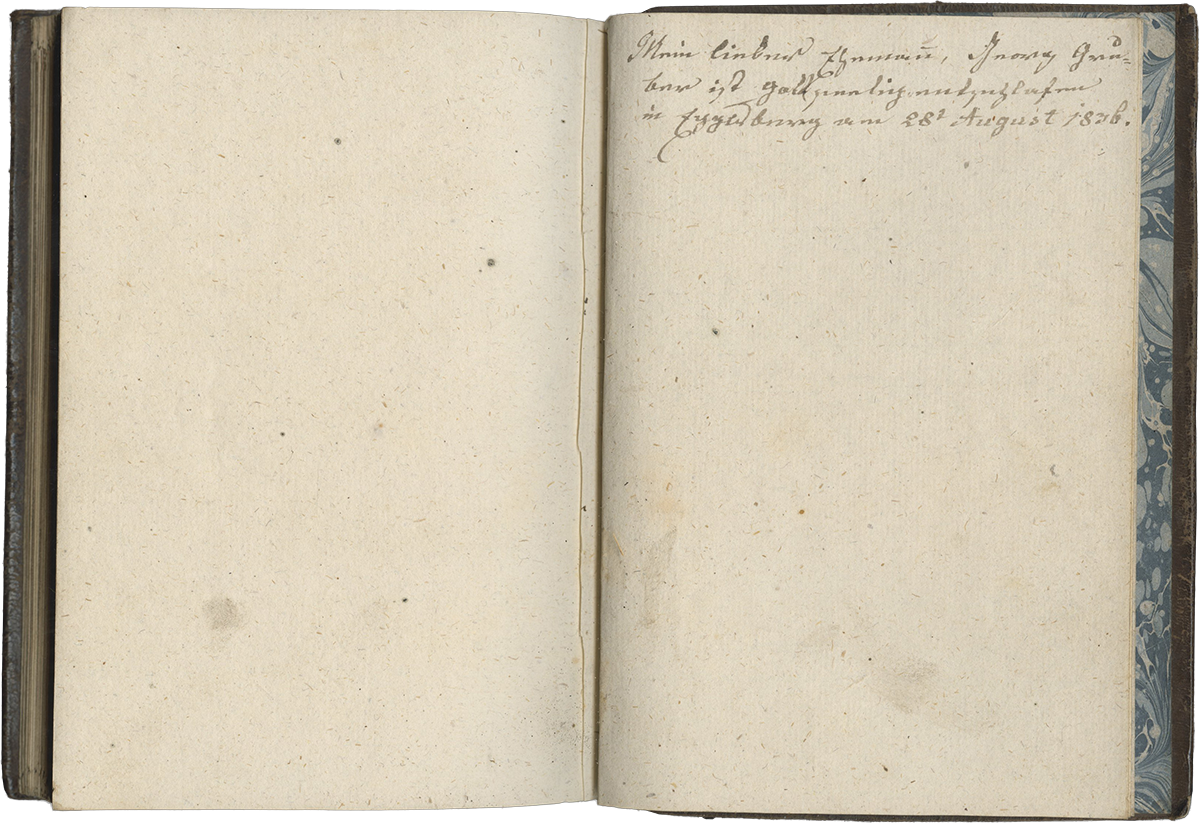 Mein lieber Ehemañ, Georg Gru=
ber ist gottseelich entschlafen
in Eggesberg am 28t August 1836.